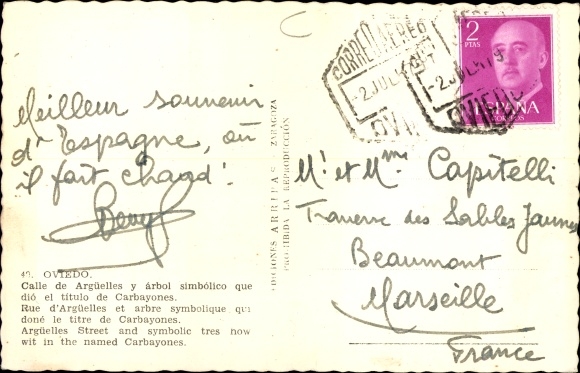 Meilleur souvenir
d'Espagne, où
il fait chaud!
49. OVIEDO.
Calle de Argüelles y árbol simbólico que
dió el título de Carbayones.
Rue d'Argüelles et arbre symbolique qui
doné le titre de Carbayones.
Argüelles Street and symbolic tres now
wit in the named Carbayones.
EDICIONES ARRIBAS - ZARAGOZA
PROHIBIDA LA REPRODUCCIÓN
CORREO AEREO
-2 JUL
OVIEDO
-2 JUL
OVIEDO
2
PTAS
ESPAÑA
CORREOS
Mr et Mme Capitelli
Traverse des Sables Jaunes
Beaumont
Marseille
France